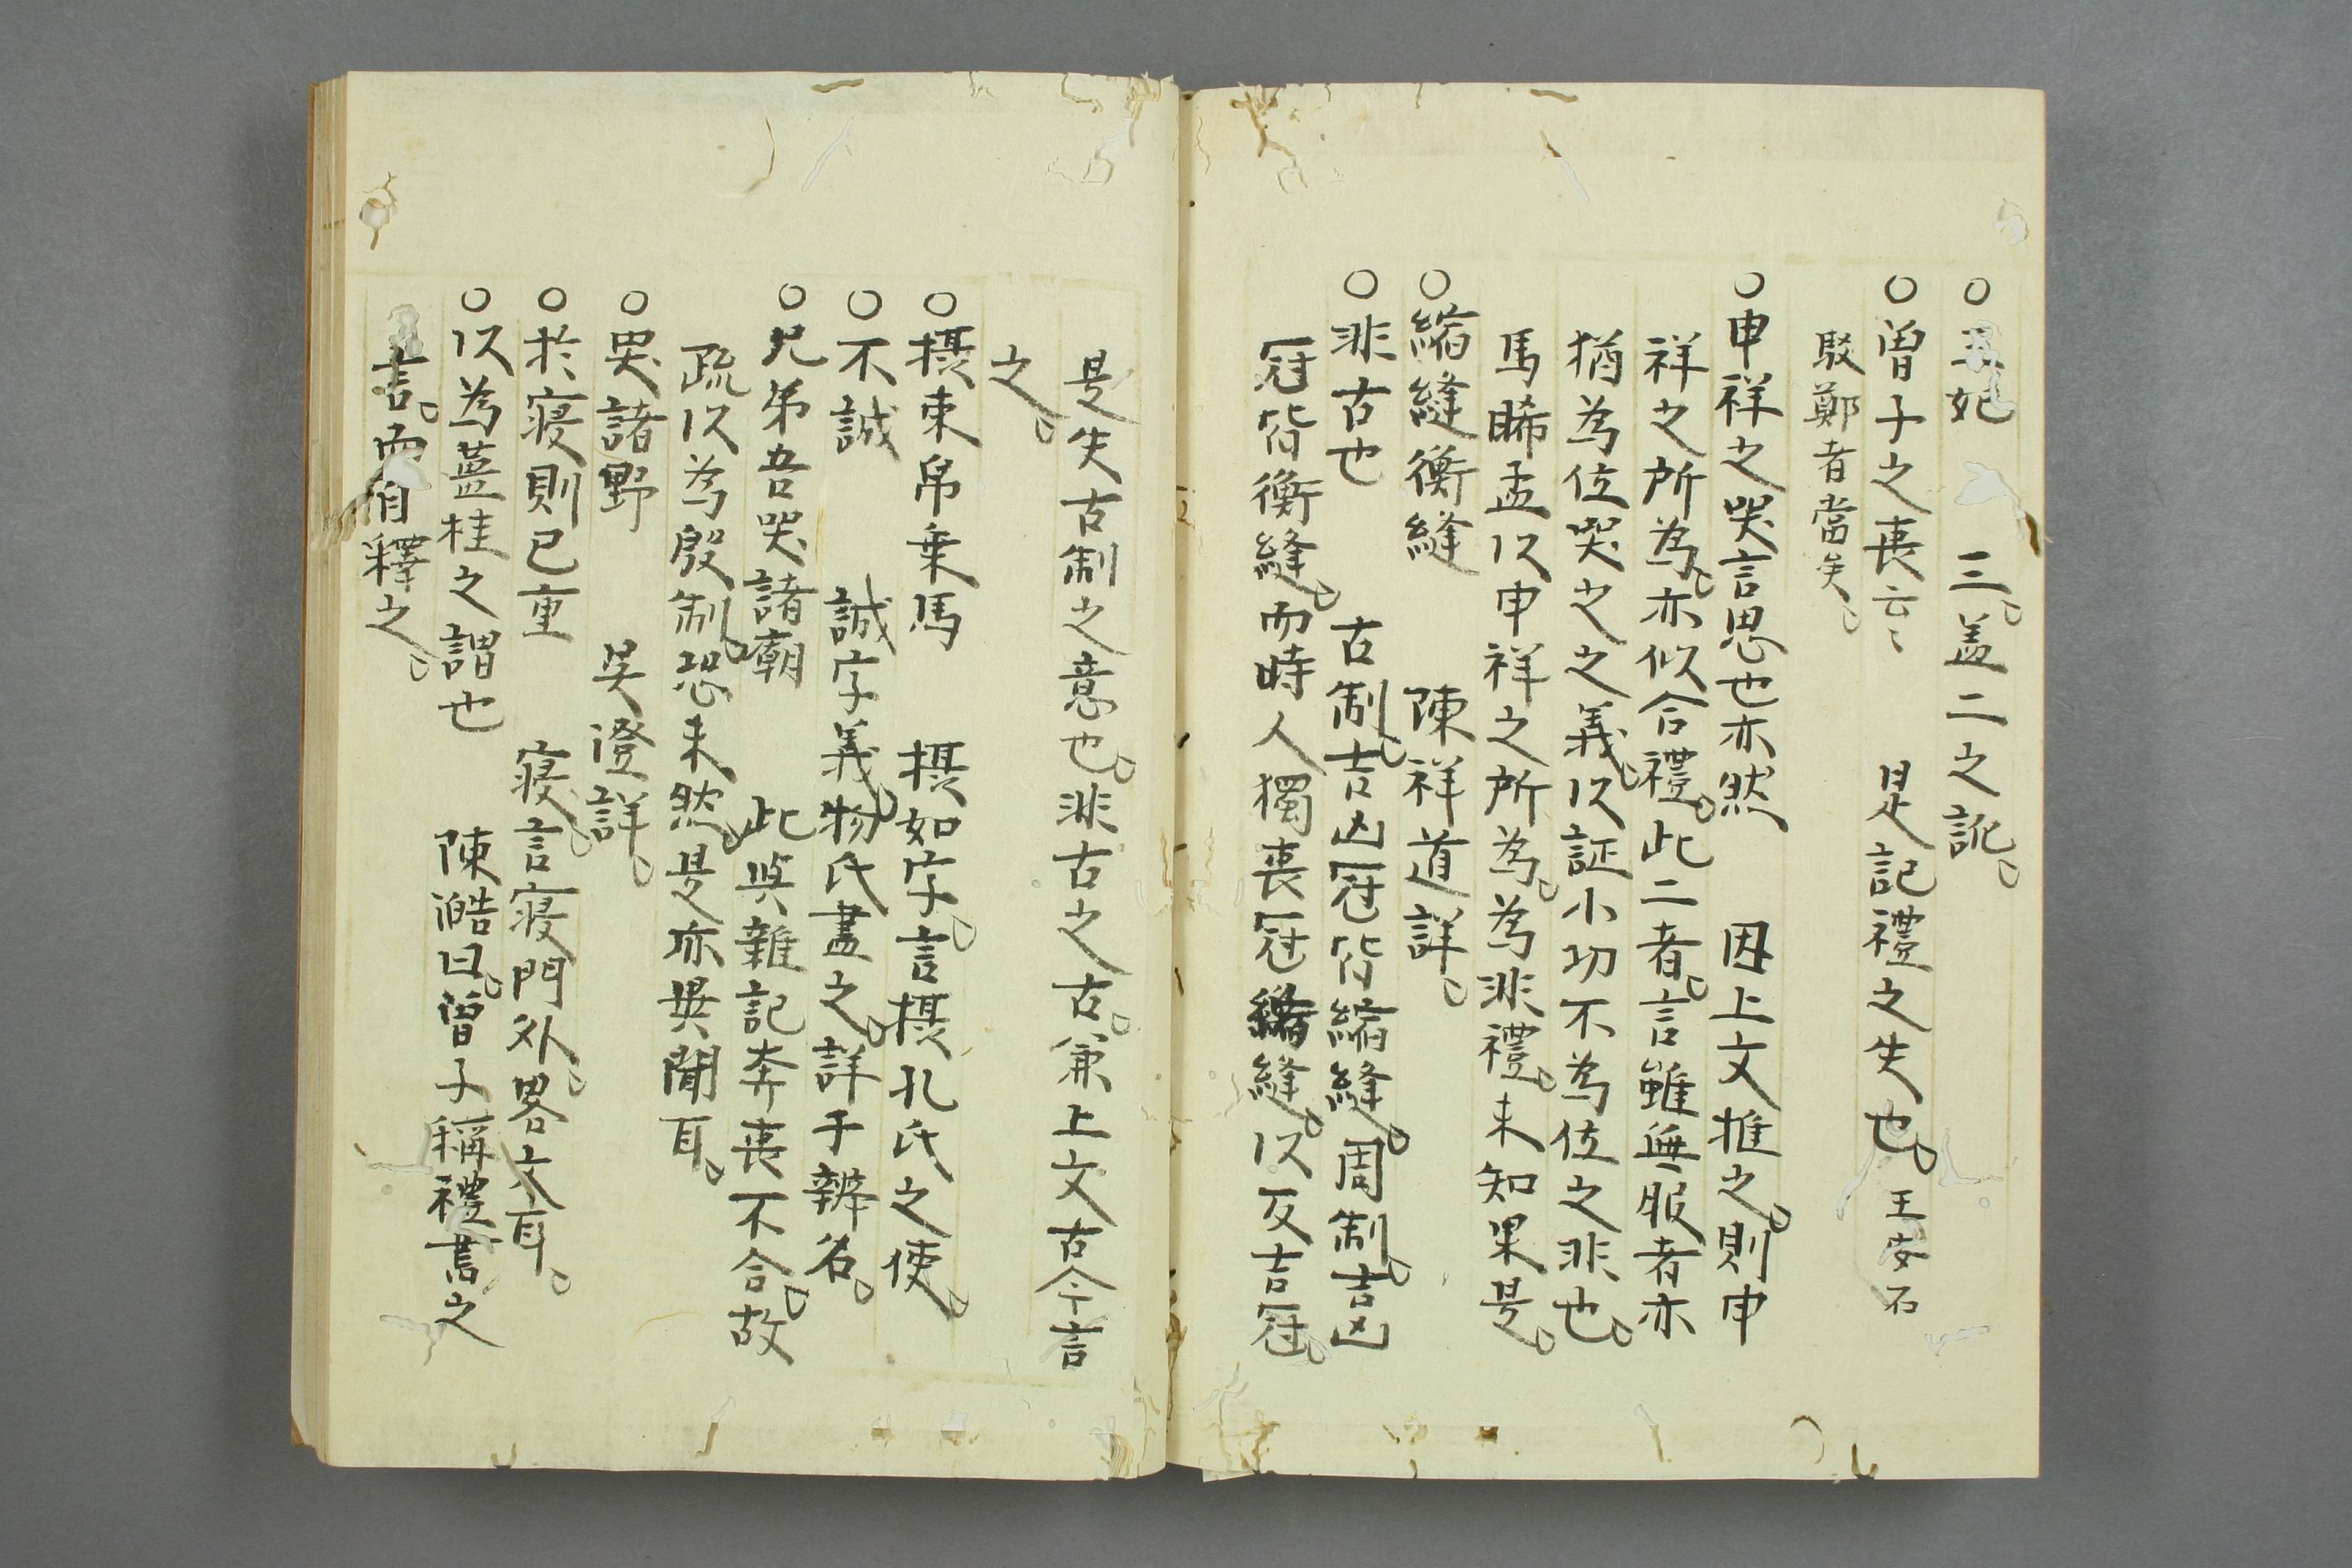 ○三妃　三。盖二之訛。
○曽子之喪云々　是記禮之失也。王安石
駁鄭者當矣。
○申祥之哭言思也亦然　因上文推之。則申
祥之所為。亦似合禮。此二者。言雖無服者亦
猶為位哭之之義。以証小功不為位之非也。
馬晞孟以申祥之所為。為非禮。未知果是。
○縮縫衡縫　陳祥道詳。
○非古也　古制。吉凶冠皆縮縫。周制。吉凶
冠皆衡縫。而時人獨喪冠縮縫。以反吉冠。
是失古制之意也。非古之古。兼上文古今言
之。
○摂束帛乗馬　摂如字。言摂孔氏之使。
○不誠　誠字義。物氏盡之。詳于辨名。
○兄弟吾哭諸廟　此與雜記奔喪不合。故
疏以為殷制。恐未然。是亦異聞耳。
○哭諸野　吴澄詳。
○於寢則已重　寢。言寢門外。畧文耳。
○以為薑桂之謂也　陳澔曰。曽子稱禮書之
言。而自釋之。